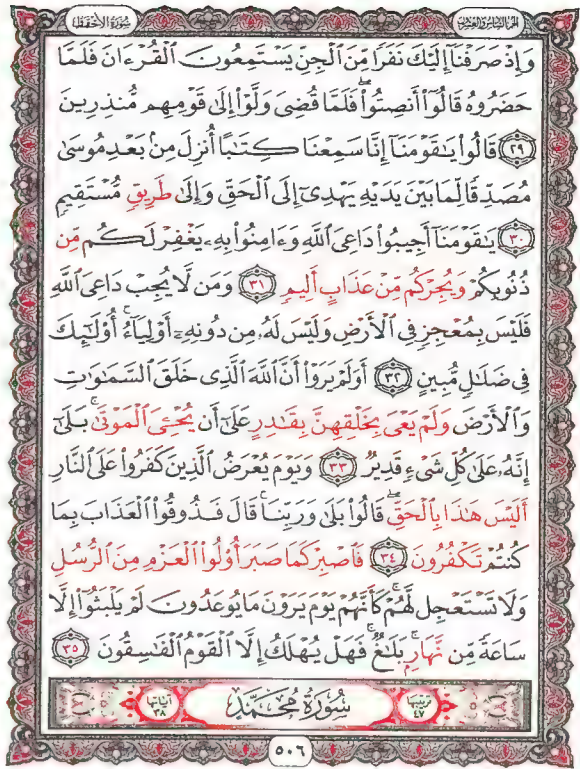 سُورَةُ الأَحْقَافِ الجزء السادس والعشرون
وَإِذْ صَرَفْنَآ إِلَيْكَ نَفَرًا مِّنَ ٱلْجِنِّ يَسْتَمِعُونَ ٱلْقُرْءَانَ فَلَمَّا
حَضَرُوهُ قَالُوٓا۟ أَنصِتُوا۟ۖ فَلَمَّا قُضِىَ وَلَّوْا۟ إِلَىٰ قَوْمِهِم مُّنذِرِينَ
٢٩ قَالُوا۟ يَٰقَوْمَنَآ إِنَّا سَمِعْنَا كِتَٰبًا أُنزِلَ مِنۢ بَعْدِ مُوسَىٰ
مُصَدِّقًا لِّمَا بَيْنَ يَدَيْهِ يَهْدِىٓ إِلَى ٱلْحَقِّ وَإِلَىٰ طَرِيقٍ مُّسْتَقِيمٍ
٣٠ يَٰقَوْمَنَآ أَجِيبُوا۟ دَاعِىَ ٱللَّهِ وَءَامِنُوا۟ بِهِۦ يَغْفِرْ لَكُم مِّن
ذُنُوبِكُمْ وَيُجِرْكُم مِّنْ عَذَابٍ أَلِيمٍ ٣١ وَمَن لَّا يُجِبْ دَاعِىَ ٱللَّهِ
فَلَيْسَ بِمُعْجِزٍ فِى ٱلْأَرْضِ وَلَيْسَ لَهُۥ مِن دُونِهِۦٓ أَوْلِيَآءُۚ أُو۟لَٰٓئِكَ
فِى ضَلَٰلٍ مُّبِينٍ ٣٢ أَوَلَمْ يَرَوْا۟ أَنَّ ٱللَّهَ ٱلَّذِى خَلَقَ ٱلسَّمَٰوَٰتِ
وَٱلْأَرْضَ وَلَمْ يَعْىَ بِخَلْقِهِنَّ بِقَٰدِرٍ عَلَىٰٓ أَن يُحْـِۧىَ ٱلْمَوْتَىٰۚ بَلَىٰٓ
إِنَّهُۥ عَلَىٰ كُلِّ شَىْءٍ قَدِيرٌ ٣٣ وَيَوْمَ يُعْرَضُ ٱلَّذِينَ كَفَرُوا۟ عَلَى ٱلنَّارِ
أَلَيْسَ هَٰذَا بِٱلْحَقِّۖ قَالُوا۟ بَلَىٰ وَرَبِّنَاۚ قَالَ فَذُوقُوا۟ ٱلْعَذَابَ بِمَا
كُنتُمْ تَكْفُرُونَ ٣٤ فَٱصْبِرْ كَمَا صَبَرَ أُو۟لُوا۟ ٱلْعَزْمِ مِنَ ٱلرُّسُلِ
وَلَا تَسْتَعْجِل لَّهُمْۚ كَأَنَّهُمْ يَوْمَ يَرَوْنَ مَا يُوعَدُونَ لَمْ يَلْبَثُوٓا۟ إِلَّا
سَاعَةً مِّن نَّهَارٍۭۚ بَلَٰغٌۚ فَهَلْ يُهْلَكُ إِلَّا ٱلْقَوْمُ ٱلْفَٰسِقُونَ ٣٥
ترتيبها ٤٧ سُورَةُ مُحَمَّد آياتها ٣٨
٥٠٦